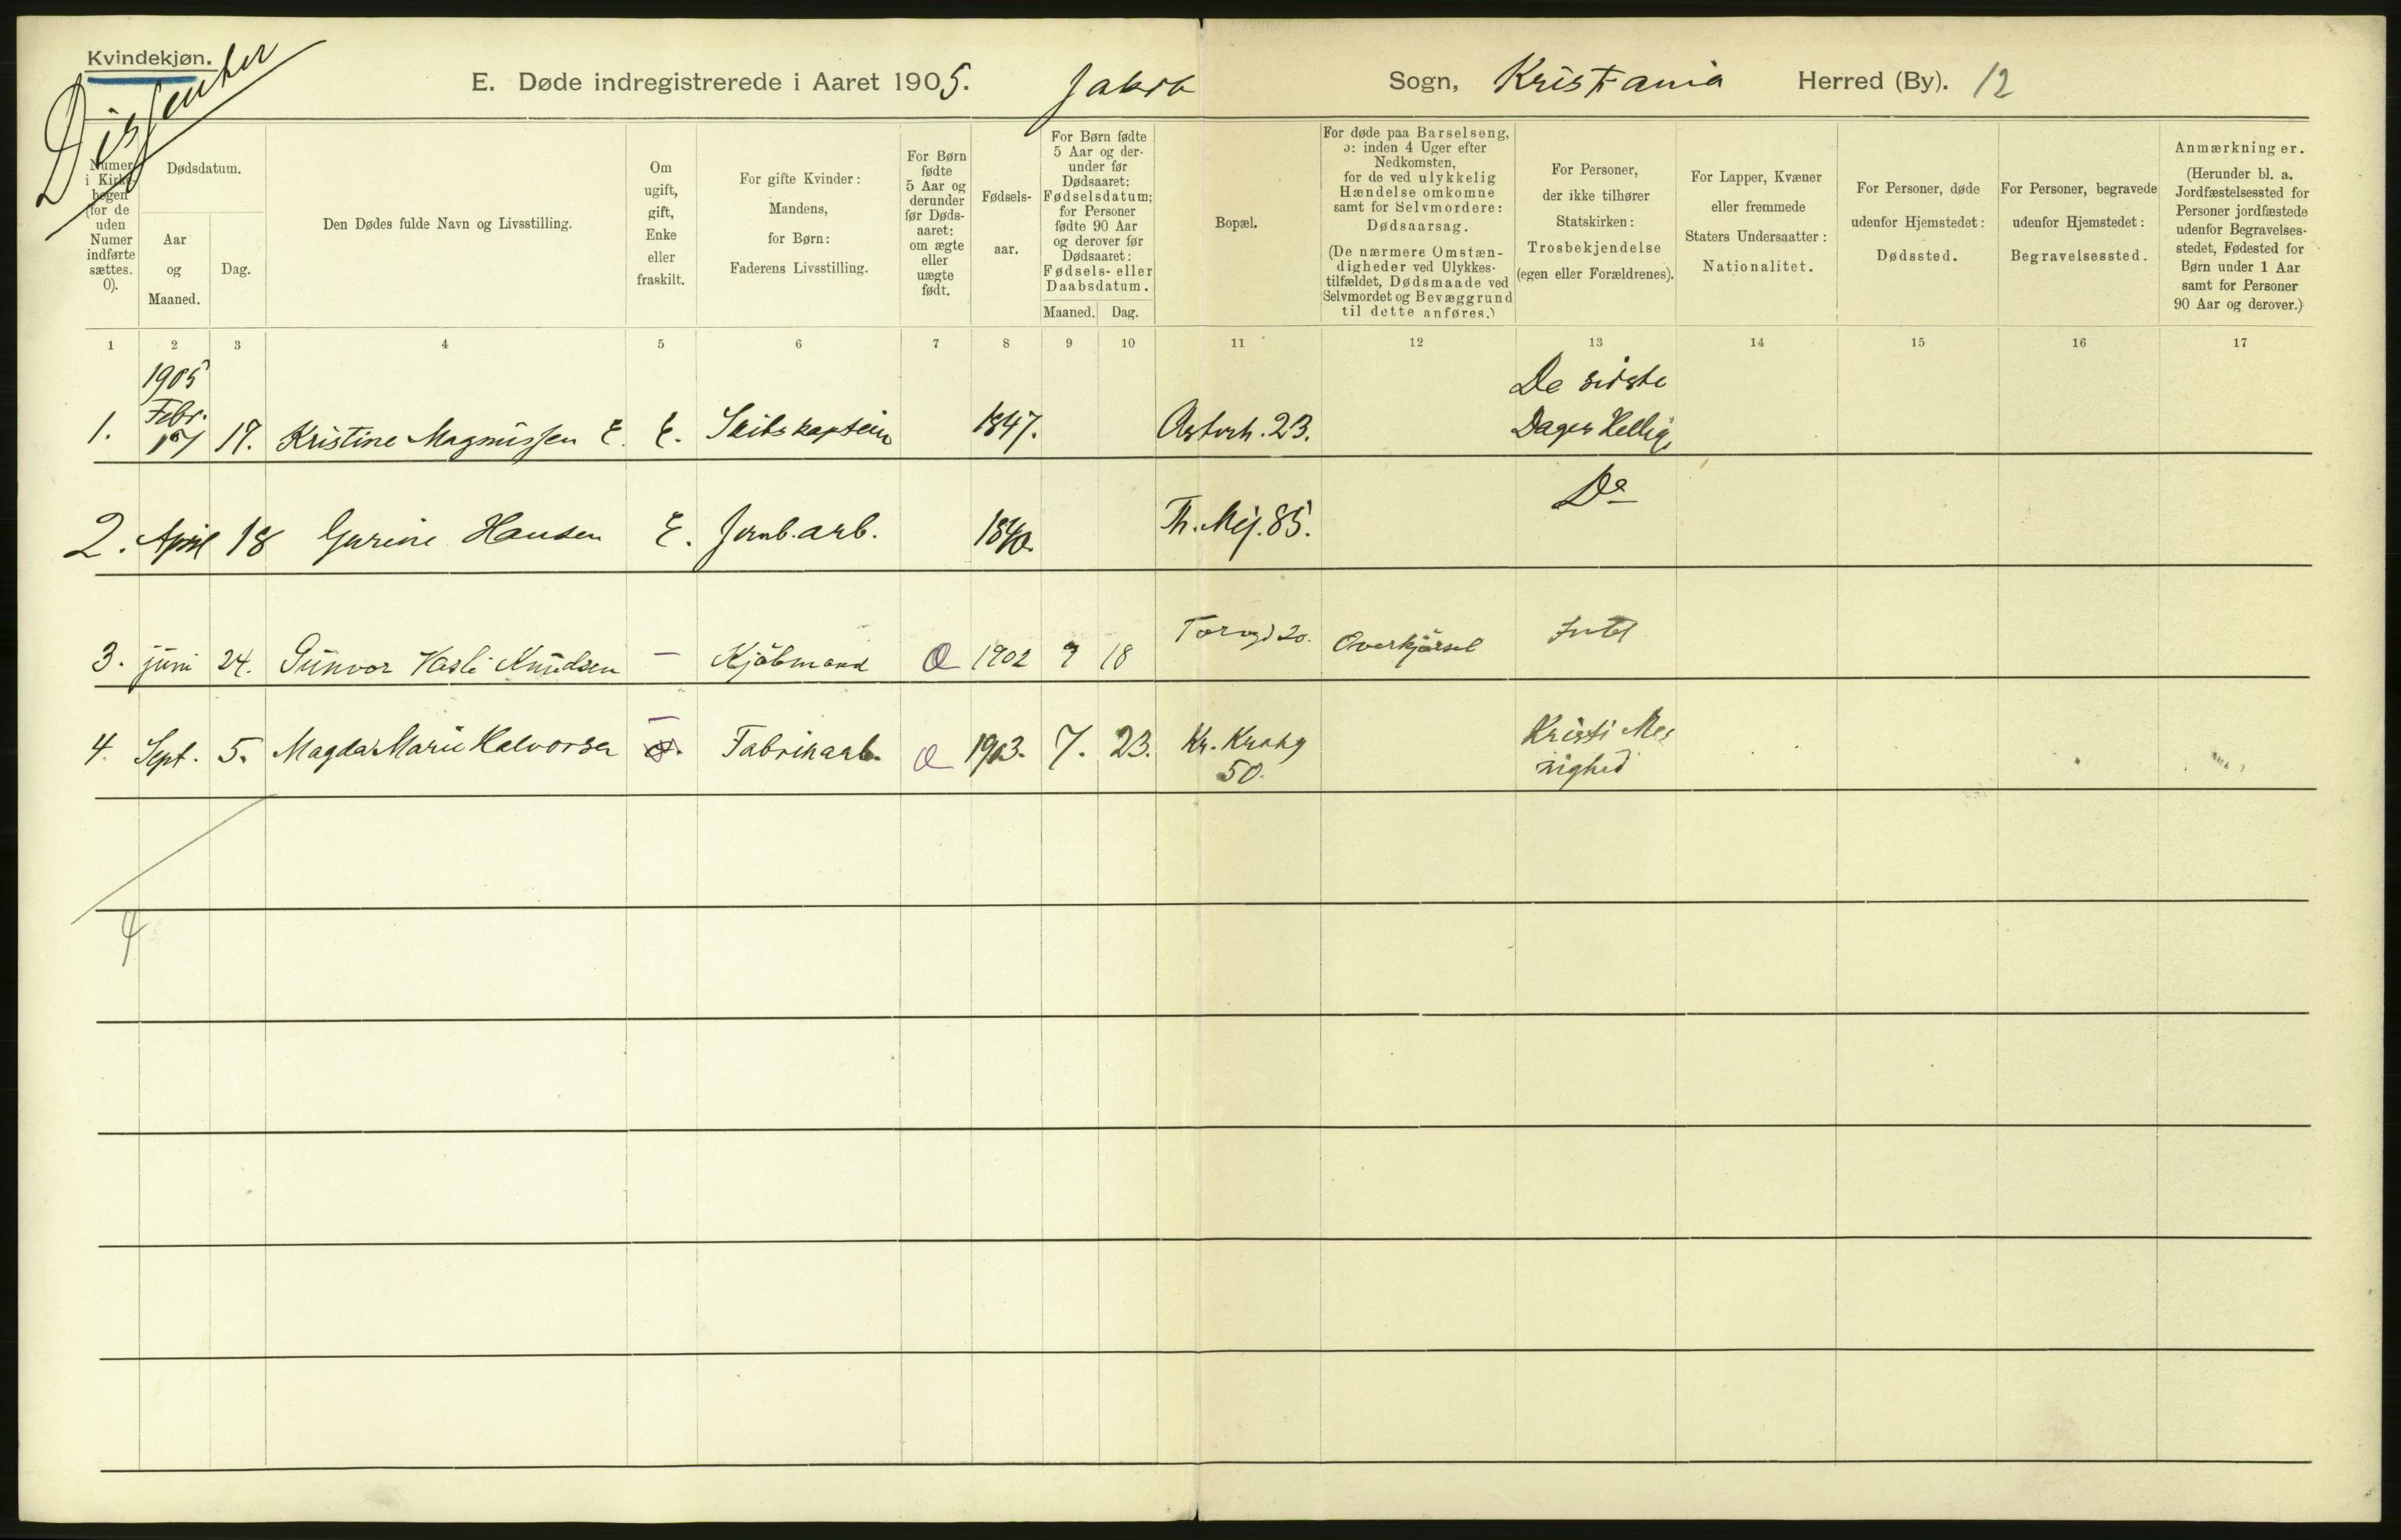 Kvindekjøn.
Dissenter
E. Døde indregistrerede i Aaret 1905. Jakob Sogn, Kristiania Herred (By). 12
Numer
i Kirke-
bogen
(for de
uden
Numer
indførte
sættes.
0).
Dødsdatum.
Aar
og
Maaned.
Dag.
Den Dødes fulde Navn og Livsstilling.
Om
ugift,
gift,
Enke
eller
fraskilt.
For gifte Kvinder:
Mandens,
for Børn:
Faderens Livsstilling.
For Børn
fødte
5 Aar og
derunder
før Døds-
aaret:
om ægte
eller
uægte
født.
Fødsels-
aar.
For Børn fødte
5 Aar og der-
under før
Dødsaaret:
Fødselsdatum;
for Personer
fødte 90 Aar
og derover før
Dødsaaret:
Fødsels- eller
Daabsdatum.
Maaned. Dag.
Bopæl.
For døde paa Barselseng,
ɔ: inden 4 Uger efter
Nedkomsten,
for de ved ulykkelig
Hændelse omkomne
samt for Selvmordere:
Dødsaarsag.
(De nærmere Omstæn-
digheder ved Ulykkes-
tilfældet, Dødsmaade ved
Selvmordet og Bevæggrund
til dette anføres.)
For Personer,
der ikke tilhører
Statskirken:
Trosbekjendelse
(egen eller Forældrenes).
For Lapper, Kvæner
eller fremmede
Staters Undersaatter:
Nationalitet.
For Personer, døde
udenfor Hjemstedet:
Dødssted.
For Personer, begravede
udenfor Hjemstedet:
Begravelsessted.
Anmærkninger.
(Herunder bl. a.
Jordfæstelsessted for
Personer jordfæstede
udenfor Begravelses-
stedet, Fødested for
Børn under 1 Aar
samt for Personer
90 Aar og derover.)
1 2 3 4 5 6 7 8 9 10 11 12 13 14 15 16 17
1905
Febr.
De sidste
1. 17. Kristine Magnussen E. E. Skibskaptein 1847. 23. Dages Hellige
2. April 18 Gurine Hansen E. Jernb.arb. 1840. Th. Mej. 85. Do
3. juni 24. Gunvor Hasli Knudsen — Kjöbmand Æ 1902 9 18 Torvgd 20. Overkjörsel Intet
4. Sept. 5. Magda Marie Halvorsen — Fabrikarb. Æ 1903. 7. 23. Kr. Krohg
50.
Kristi Me
nighed
4